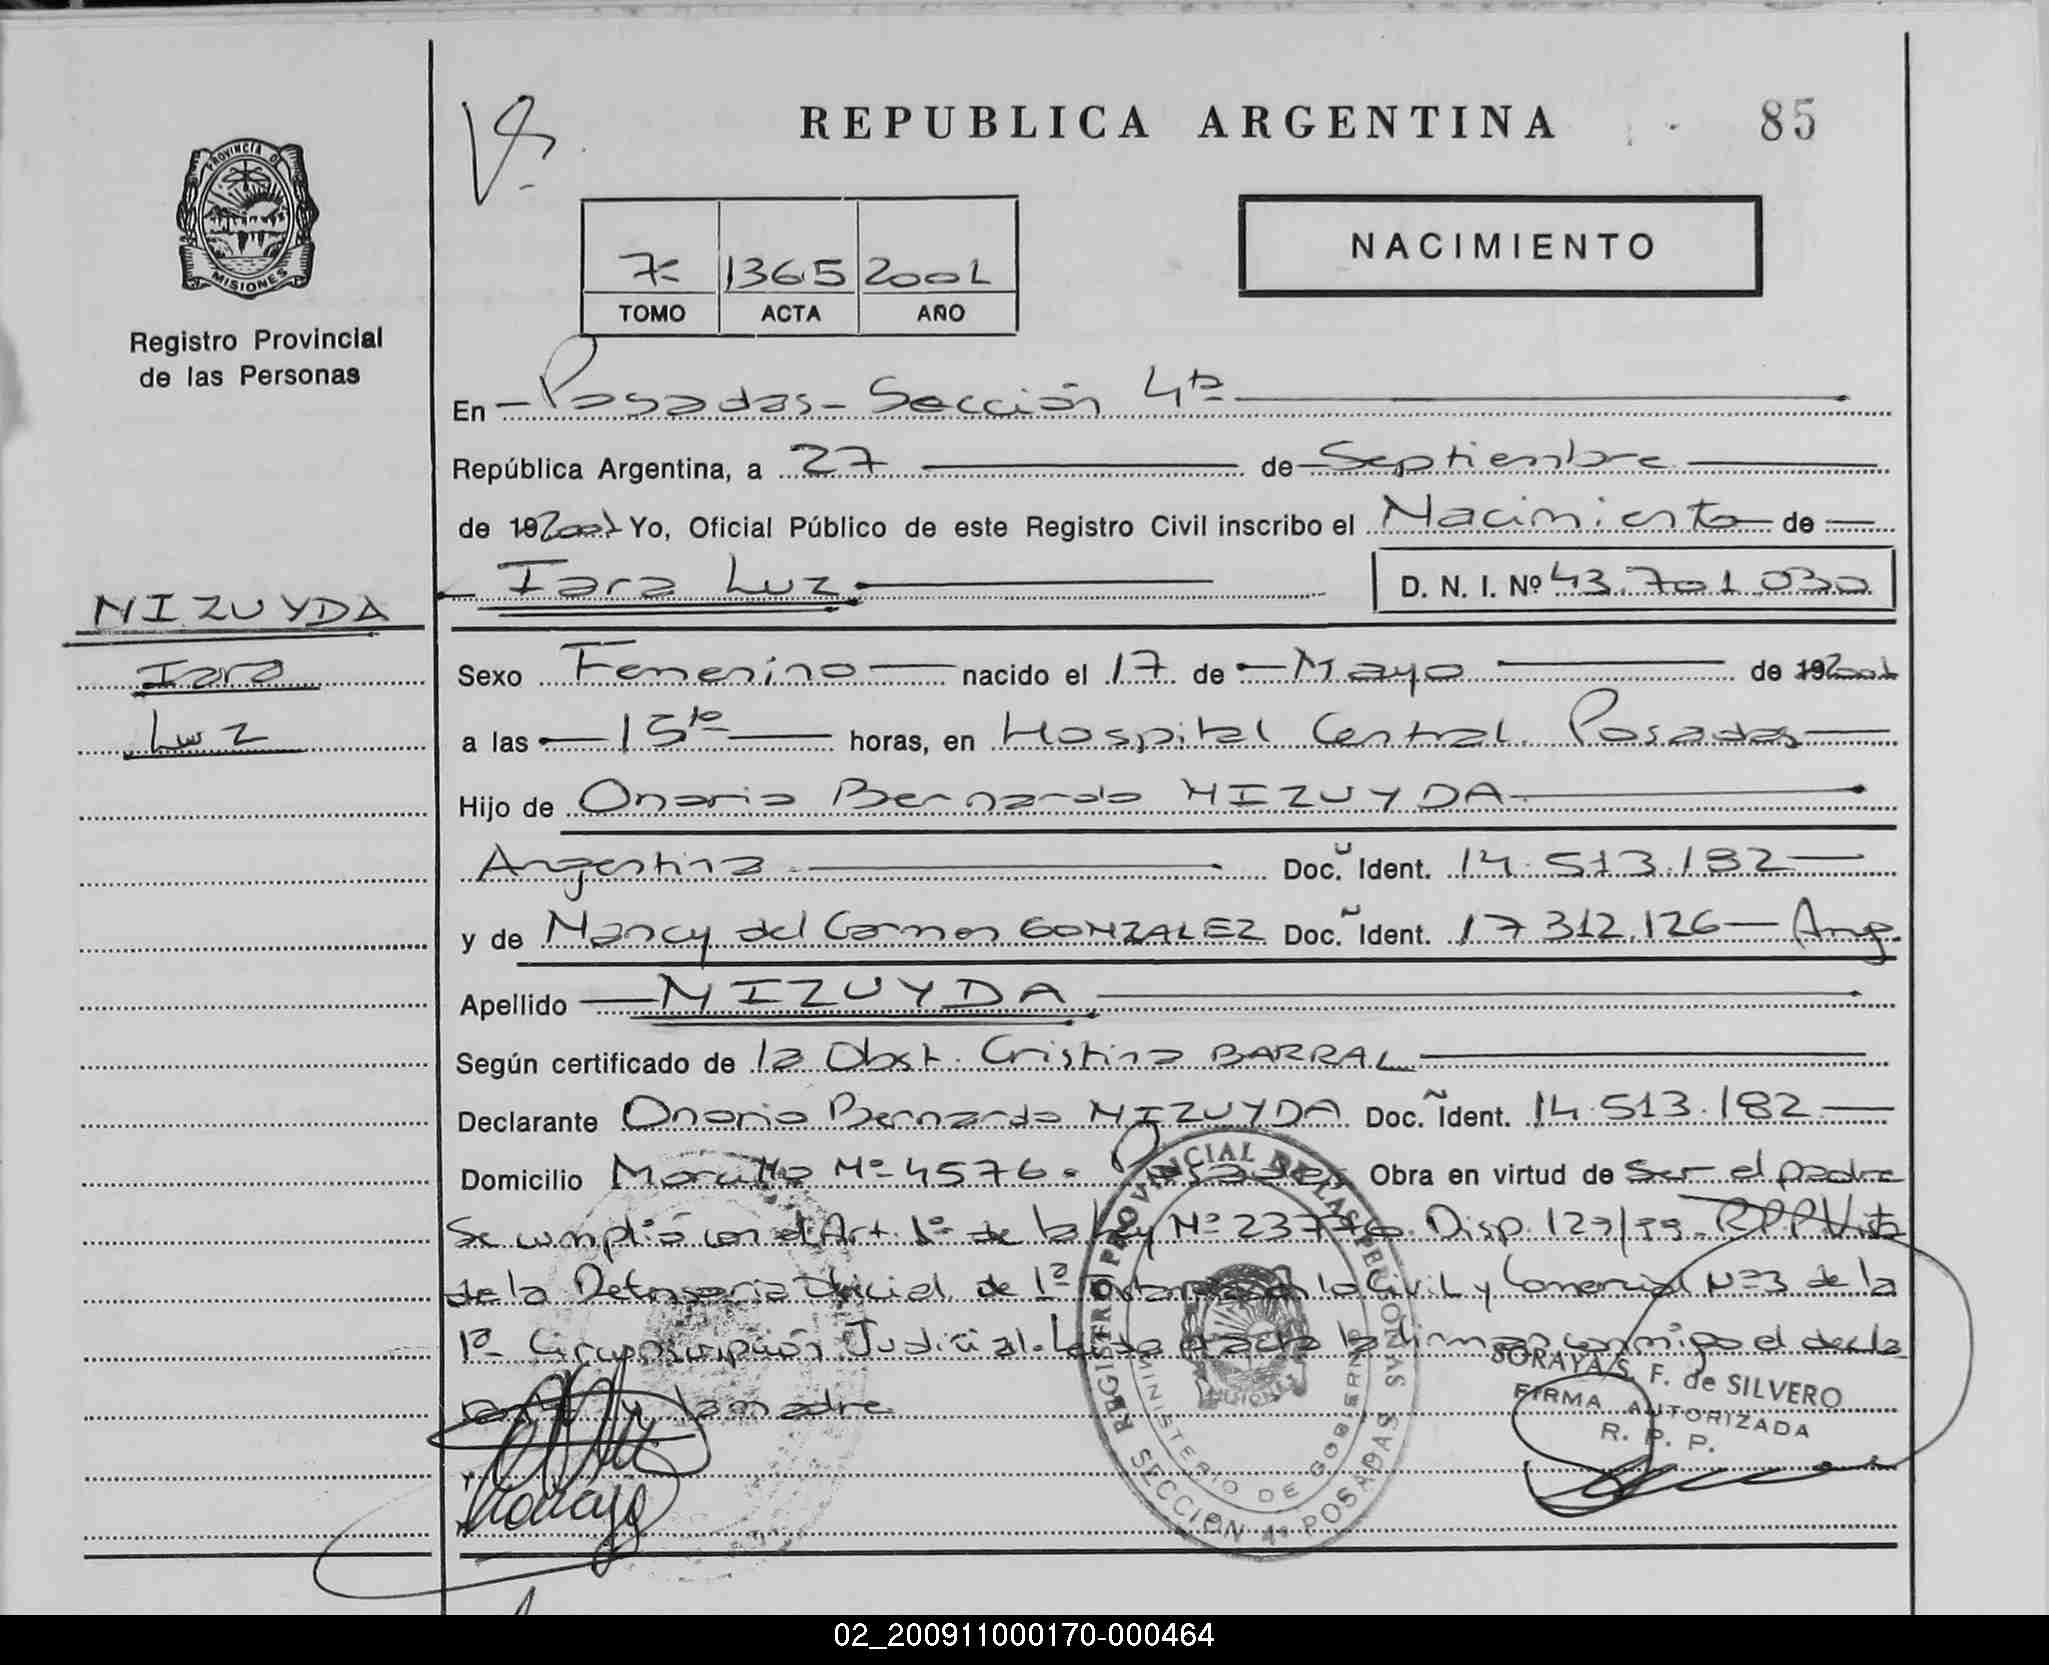 REPUBLICA ARGENTINA
85
PROVINCIA DE
MISIONES
Registro Provincial
de las Personas
NACIMIENTO
7 1365 2001
TOMO ACTA AÑO
En Posadas - Sección 4ta
República Argentina, a 27 de Septiembre
de 192001 Yo, Oficial Público de este Registro Civil inscribo el Nacimiento de
Iara Luz D. N. I. Nº 43.701.030
NIZUYDA
Iara
Luz
Sexo Femenino nacido el 17 de Mayo de 192001
a las 15 horas, en Hospital Central Posadas
Hijo de Onorio Bernardo NIZUYDA
Argentina Doc. Ident. 14.513.182
y de Nancy del Carmen GONZALEZ Doc. Ident. 17.312.126 Arg.
Apellido NIZUYDA
Según certificado de la Obst. Cristina BARRAL
Declarante Onorio Bernardo NIZUYDA Doc. Ident. 14.513.182
Domicilio Nº 4576. Posadas Obra en virtud de ser el padre
Se cumplió con el Art. 1º de la Ley Nº 23776. Disp. 129/99. Vista
de la Defensoria Oficial de 1ª en lo Civil y Comercial Nº 3 de la
1ª Circunscripción Judicial. Leida el acta la firman conmigo el decla
rante y la madre
REGISTRO PROVINCIAL DE LAS PERSONAS
MINISTERIO DE GOBIERNO
MISIONES
SECCION 4º POSADAS
SORAYA S. F. de SILVERO
FIRMA AUTORIZADA
R. P. P.
02_200911000170-000464